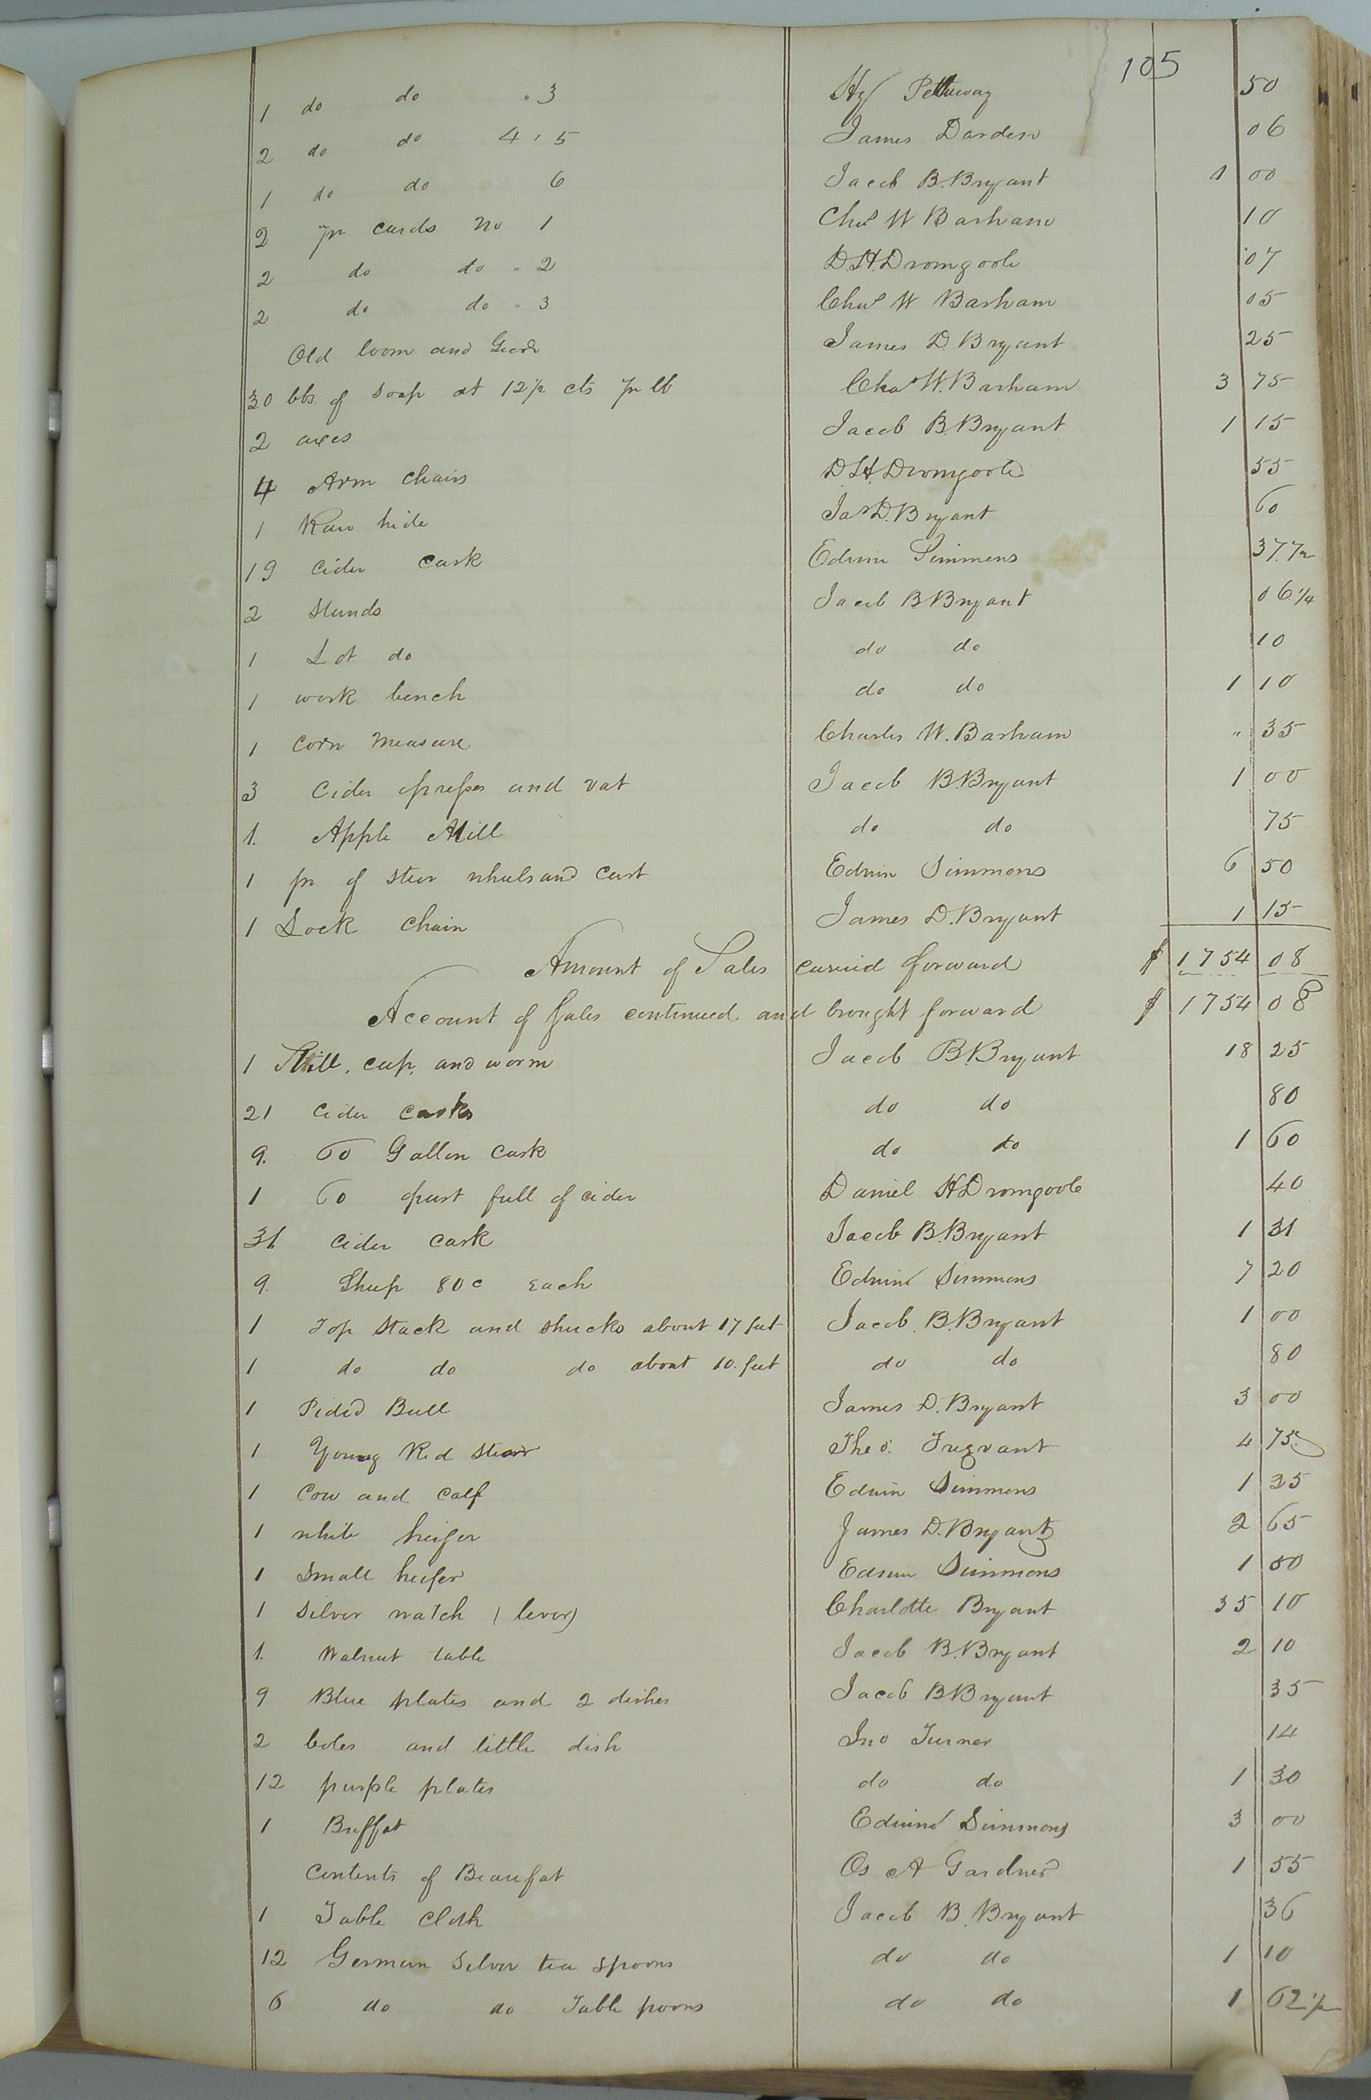 105
1 do do " 3 Hy Pettway 50
2 do do 4 " 5 James Darden 06
1 do do 6 Jacob B. Bryant 1 00
2 pr cards No 1 Chas W Barham 10
2 do do " 2 D. H. Dromgoole 07
2 do do " 3 Chas W Barham 05
Old loom and Gear James D. Bryant 25
30 lbs of Soap at 12 1/2 cts pr lb Chas W. Barham 3 75
2 axes Jacob B. Bryant 1 15
4 Arm Chairs D. H. Dromgoole 55
1 Raw hide Jas D. Bryant 60
19 Cider Cask Edwin Simmons 37 1/2
2 Stands Jacob B Bryant 06 1/4
1 Lot do do do 10
1 work bench do do 1 10
1 Corn Measure Charles W. Barham " 35
3 Cider presses and vat Jacob B. Bryant 1 00
1. Apple Mill do do 75
1 pr of steer wheels and Cart Edwin Simmons 6 50
1 Lock Chain James D. Bryant 1 15
Amount of Sales carried forward $ 1754 08
Account of Sales continued and brought forward $ 1754 08
1 Still, cap, and worm Jacob B. Bryant 18 25
21 Cider Casks do do 80
9. 60 Gallon Cask do do 1 60
1 60 part full of cider Daniel H Dromgoole 40
31 Cider Cask Jacob B. Bryant 1 31
9. Sheep 80c Each Edwin Simmons 7 20
1 Top Stack and shucks about 17 feet Jacob. B. Bryant 1 00
1 do do do about 10. feet do do 80
1 Pided Bull James D. Bryant 3 00
1 Young Red Steer Theo. Trezvant 4 75
1 Cow and Calf Edwin Simmons 1 25
1 white heifer James D. Bryant 2 65
1 Small heifer Edwin Simmons 1 50
1 Silver watch (lever) Charlotte Bryant 35 10
1. Walnut table Jacob B. Bryant 2 10
9 Blue plates and 2 dishes Jacob B Bryant 35
2 boles and little dish Jno Turner 14
12 purple plates do do 1 30
1 Buffat Edwin Simmons 3 00
Contents of Beaufat Os A Gardner 1 55
1 Table Cloth Jacob B. Bryant 36
12 German Silver tea Spoons do do 1 10
6 do do Table poons do do 1 62 1/2